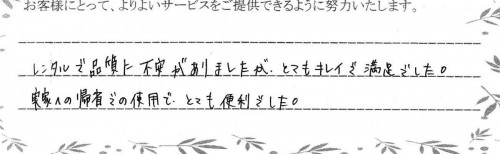 お客様にとって、よりよいサービスをご提供できるように努力いたします。
レンタルで品質に不安がありましたが、とてもキレイで満足でした。
実家への帰省での使用で、とても便利でした。